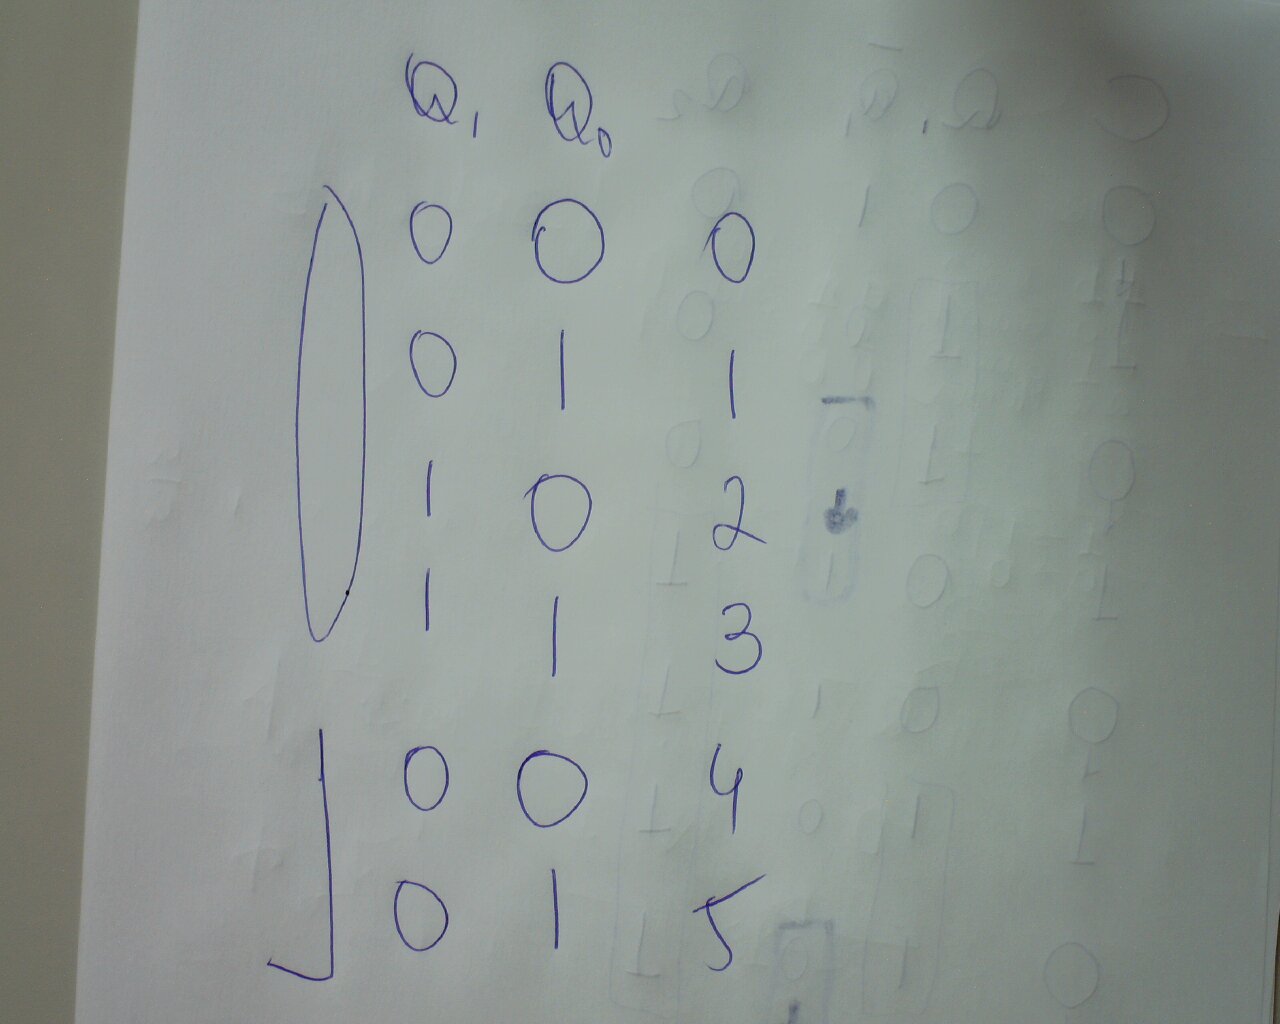 Q₁ Q₀
0 0 0
0 1 1
1 0 2
1 1 3
0 0 4
0 1 5